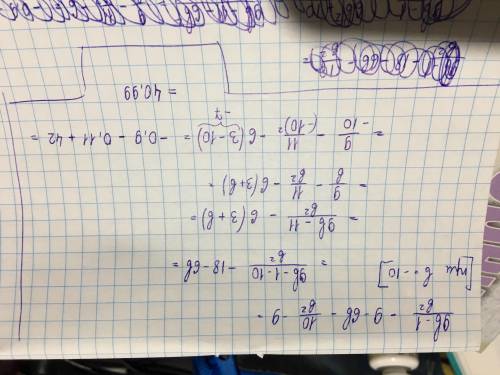 (9b - 1)/b² - 9 - 6b - 10/b² - 9 =
[при b = -10]
= (9b - 1 - 10)/b² - 18 - 6b =
= (9b - 11)/b² - 6(3 + b) =
= 9/b - 11/b² - 6(3 + b) =
= 9/-10 - 11/(-10)² - 6(3 - 10) = -0,9 - 0,11 + 42 =
-7
= 40,99